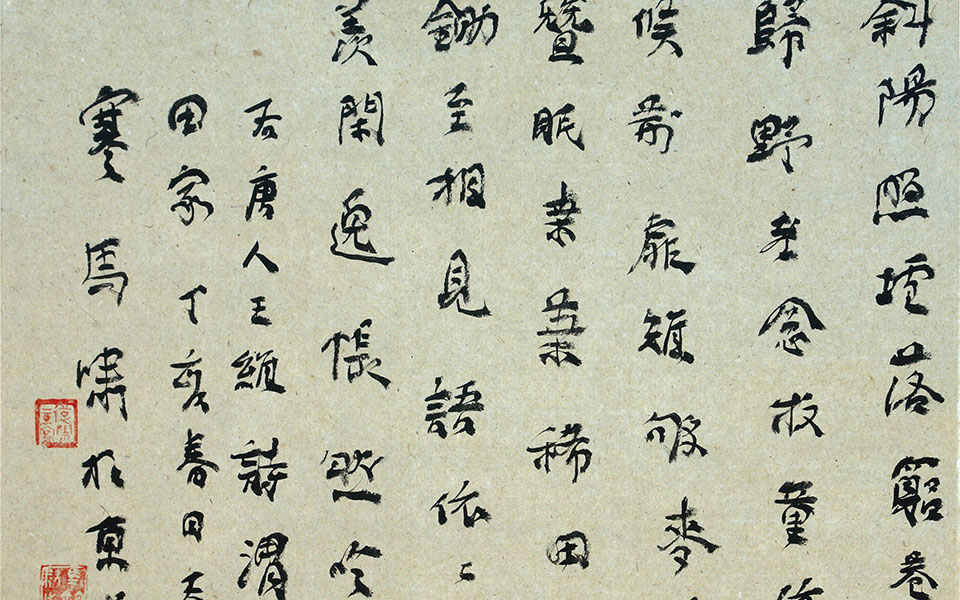 斜陽照墟落窮巷
歸野老念牧童
候荊扉雉雊麥
蠶眠桑葉稀田
鋤至相見語依〻
羨閑逸悵然吟
右唐人王維詩渭
田家丁亥春日
寒馬嘯於東